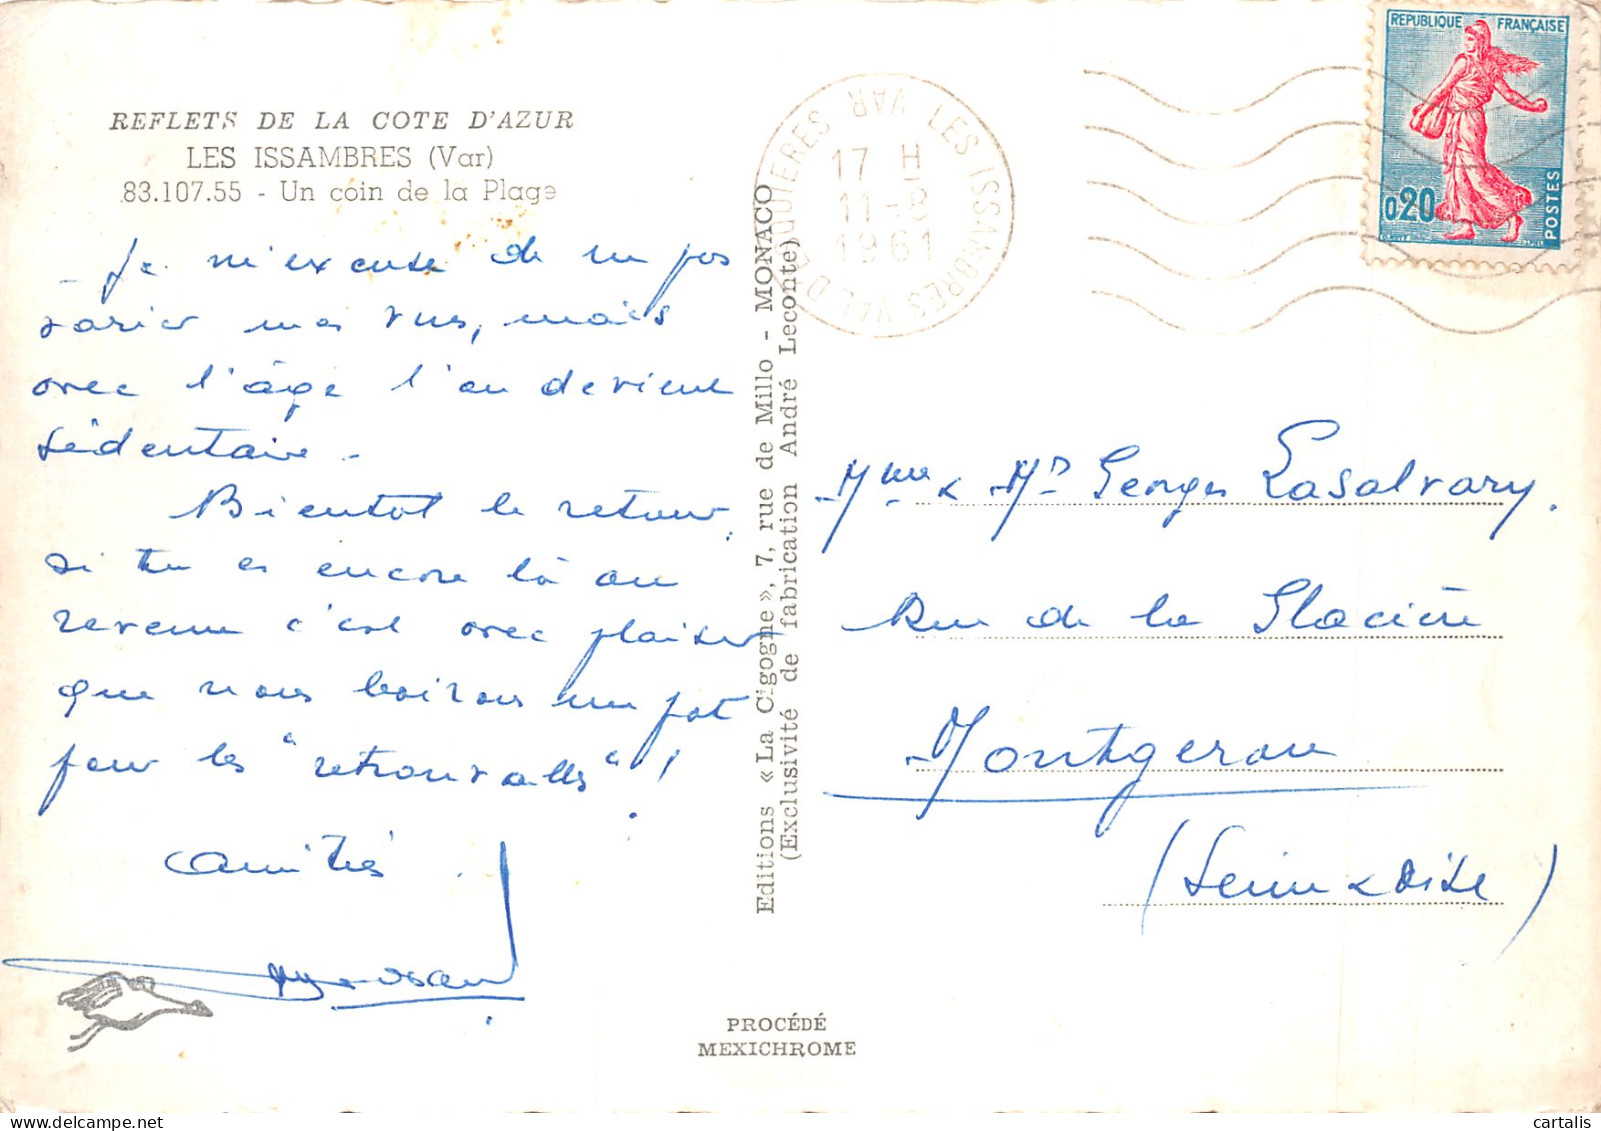 REFLETS DE LA COTE D'AZUR
LES ISSAMBRES (Var)
83.107.55 - Un coin de la Plage
- Je m'excuse de ne pas
varier mes vues, mais
avec l'âge l'on devient
sédentaire -
Bientot le retour,
si tu es encore là au
revenu c'est avec plaisir
que nous boirons un pot
pour les "retrouvalles" !
Amitiés.
Editions « La Cigogne », 7, rue de Millo - MONACO
(Exclusivité de fabrication André Leconte)
PROCÉDÉ
MEXICHROME
LES ISSAMBRES VAL D'ESQUIERES VAR
17 H
11-8
1961
REPUBLIQUE FRANÇAISE
0,20
POSTES
Mme & Mr Georges Lasalvary.
Rue de la Glacière
Montgeron
(Seine & Oise)
cartalis
delcampe.net